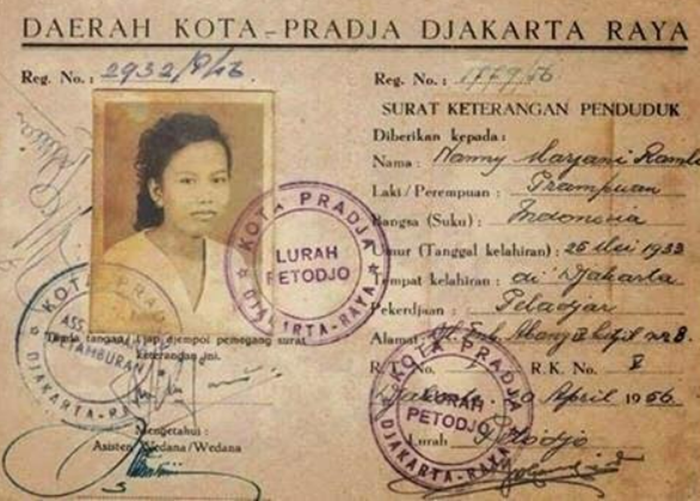 DAERAH KOTA-PRADJA DJAKARTA RAYA
Reg. No.: 2932/9/56.
Reg. No.: 1779/56
SURAT KETERANGAN PENDUDUK
Diberikan kepada:
Nama: Nanny Marjani
Laki/Perempuan: Prampuan
Bangsa (Suku): Indonesia
Umur (Tanggal kelahiran): 25 Mei 1933
Tempat kelahiran: di Djakarta
Pekerdjaan: Peladjar
Alamat: Abang No. 8.
R. No. R.K. No. V
Djakarta, April 1956.
Lurah Petodjo
Tanda tangan/Tjap djempol pemegang surat
keterangan ini.
Mengetahui:
Asisten Wedana/Wedana
KOTA PRADJA
LURAH
PETODJO
DJAKARTA-RAYA
KOTA PRADJA
ASS.
PETAMBURAN
DJAKARTA-RAYA
KOTA PRADJA
LURAH
PETODJO
DJAKARTA-RAYA